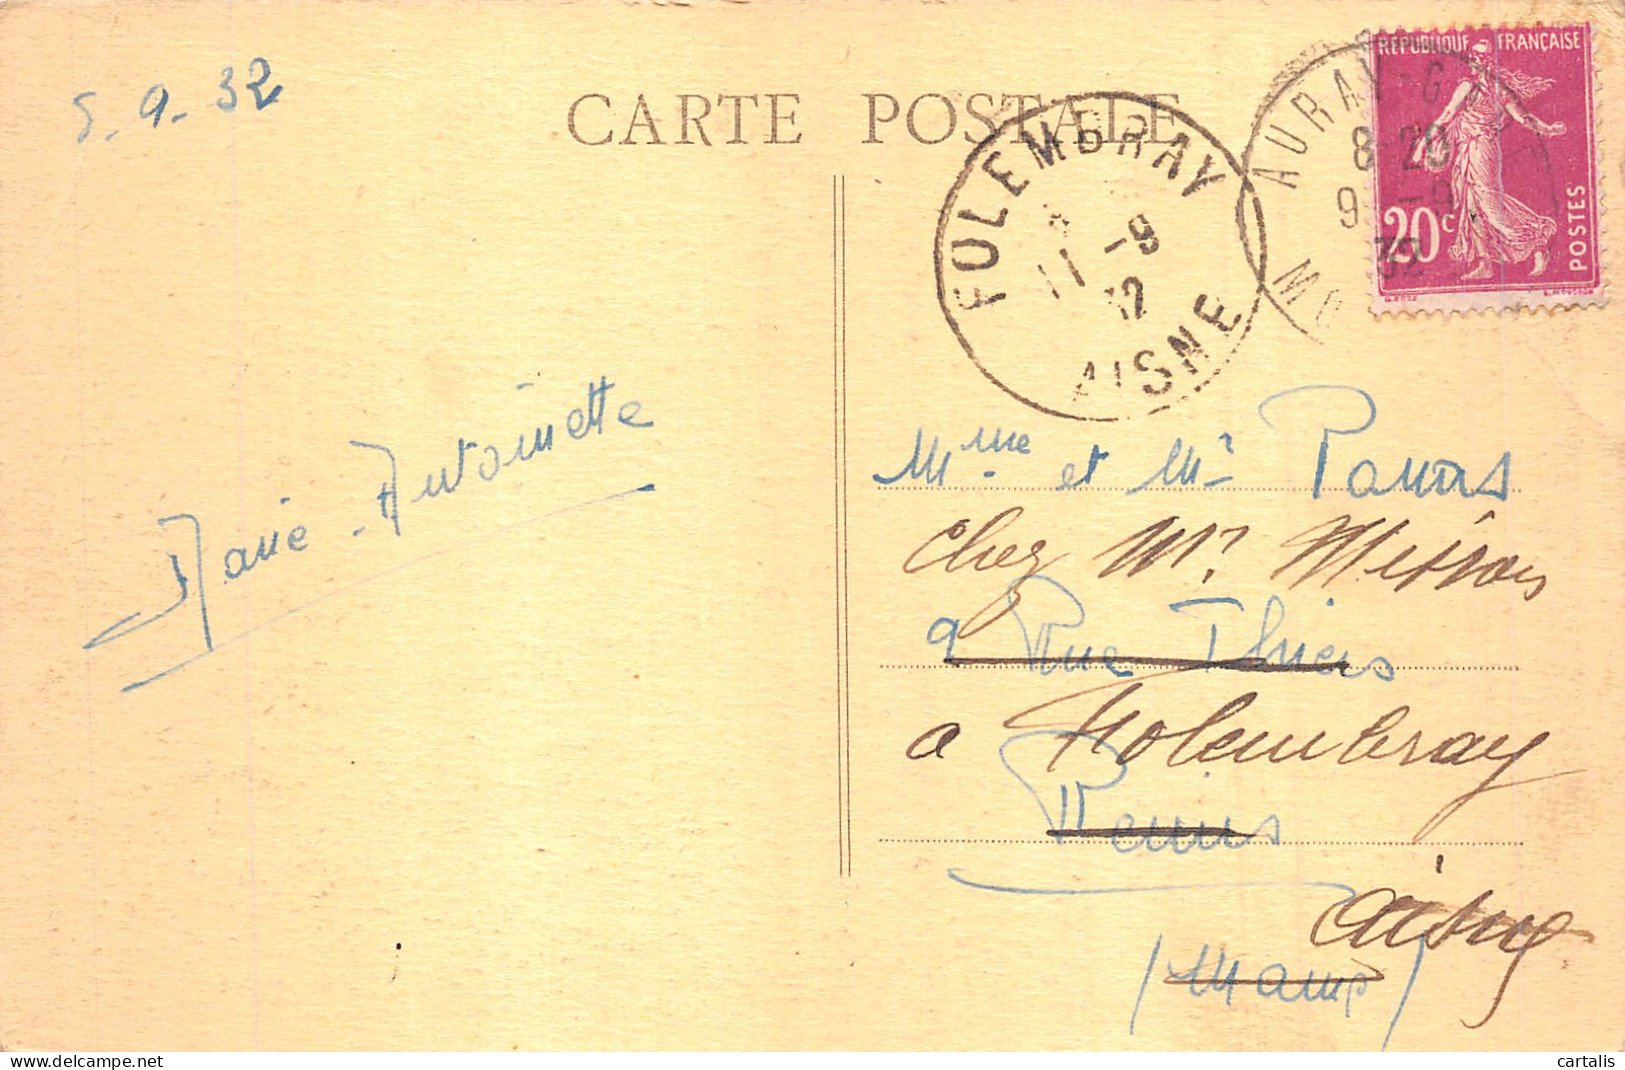 5-9-32
CARTE POSTALE
RÉPUBLIQUE FRANÇAISE
20c
POSTES
AURAY-GARE
8 20
9 -9
32
MO
FOLEMBRAY
11 -9
32
AISNE
Marie-Antoinette
Mme et Mr
chez Mr
9 Rue Thiers
a Folembray
Reims
Aisne
(Marne)
cartalis
www.delcampe.net